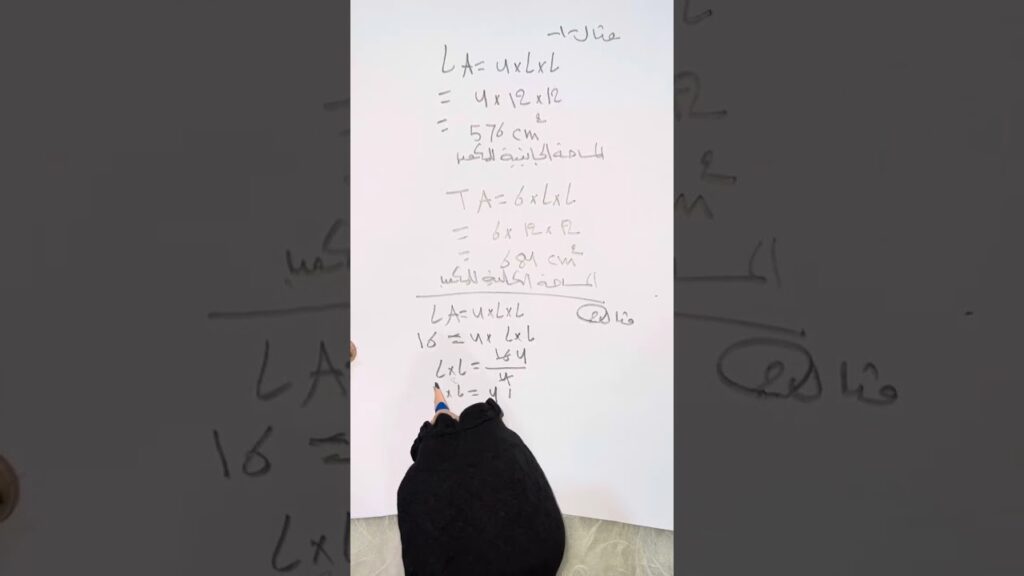 مثال -١-
LA = 4×L×L
= 4×12×12
= 576 cm²
المساحة الجانبية للمكعب
TA = 6×L×L
= 6×12×12
= 684 cm²
المساحة الكلية للمكعب
LA = 4×L×L
16 = 4× L×L
L×L = 16 4 / 4
×L = 4